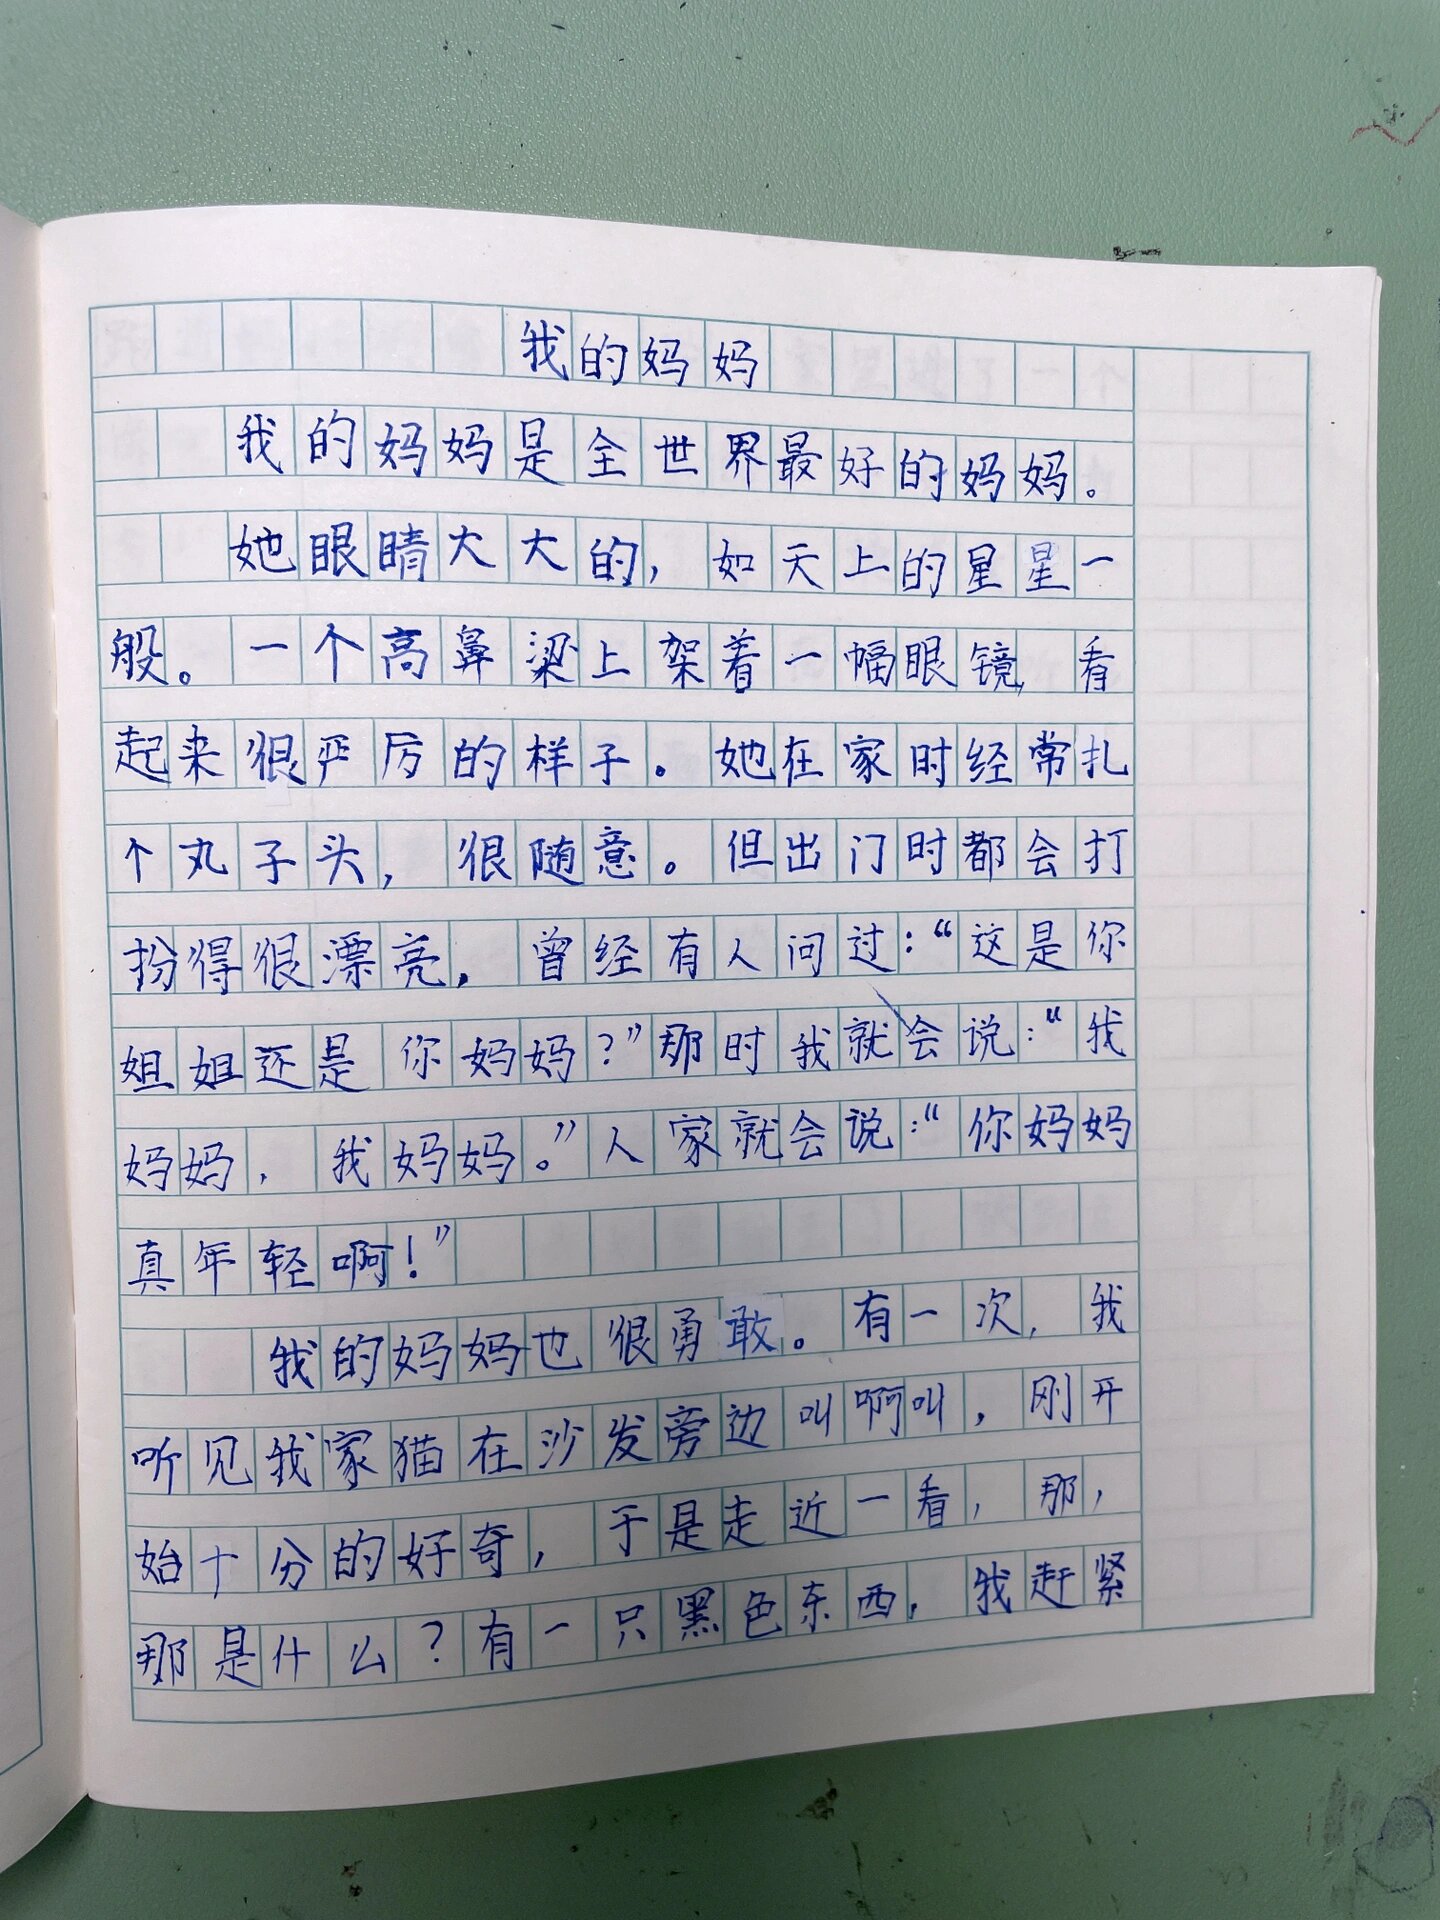 我的妈妈
我的妈妈是全世界最好的妈妈。
她眼睛大大的，如天上的星星一
般。一个高鼻梁上架着一幅眼镜，看
起来很严厉的样子。她在家时经常扎
个丸子头，很随意。但出门时都会打
扮得很漂亮，曾经有人问过：“这是你
姐姐还是你妈妈？”那时我就会说：“我
妈妈，我妈妈。”人家就会说：“你妈妈
真年轻啊！”
我的妈妈也很勇敢。有一次，我
听见我家猫在沙发旁边叫啊叫，刚开
始十分的好奇，于是走近一看，那，
那是什么？有一只黑色东西，我赶紧